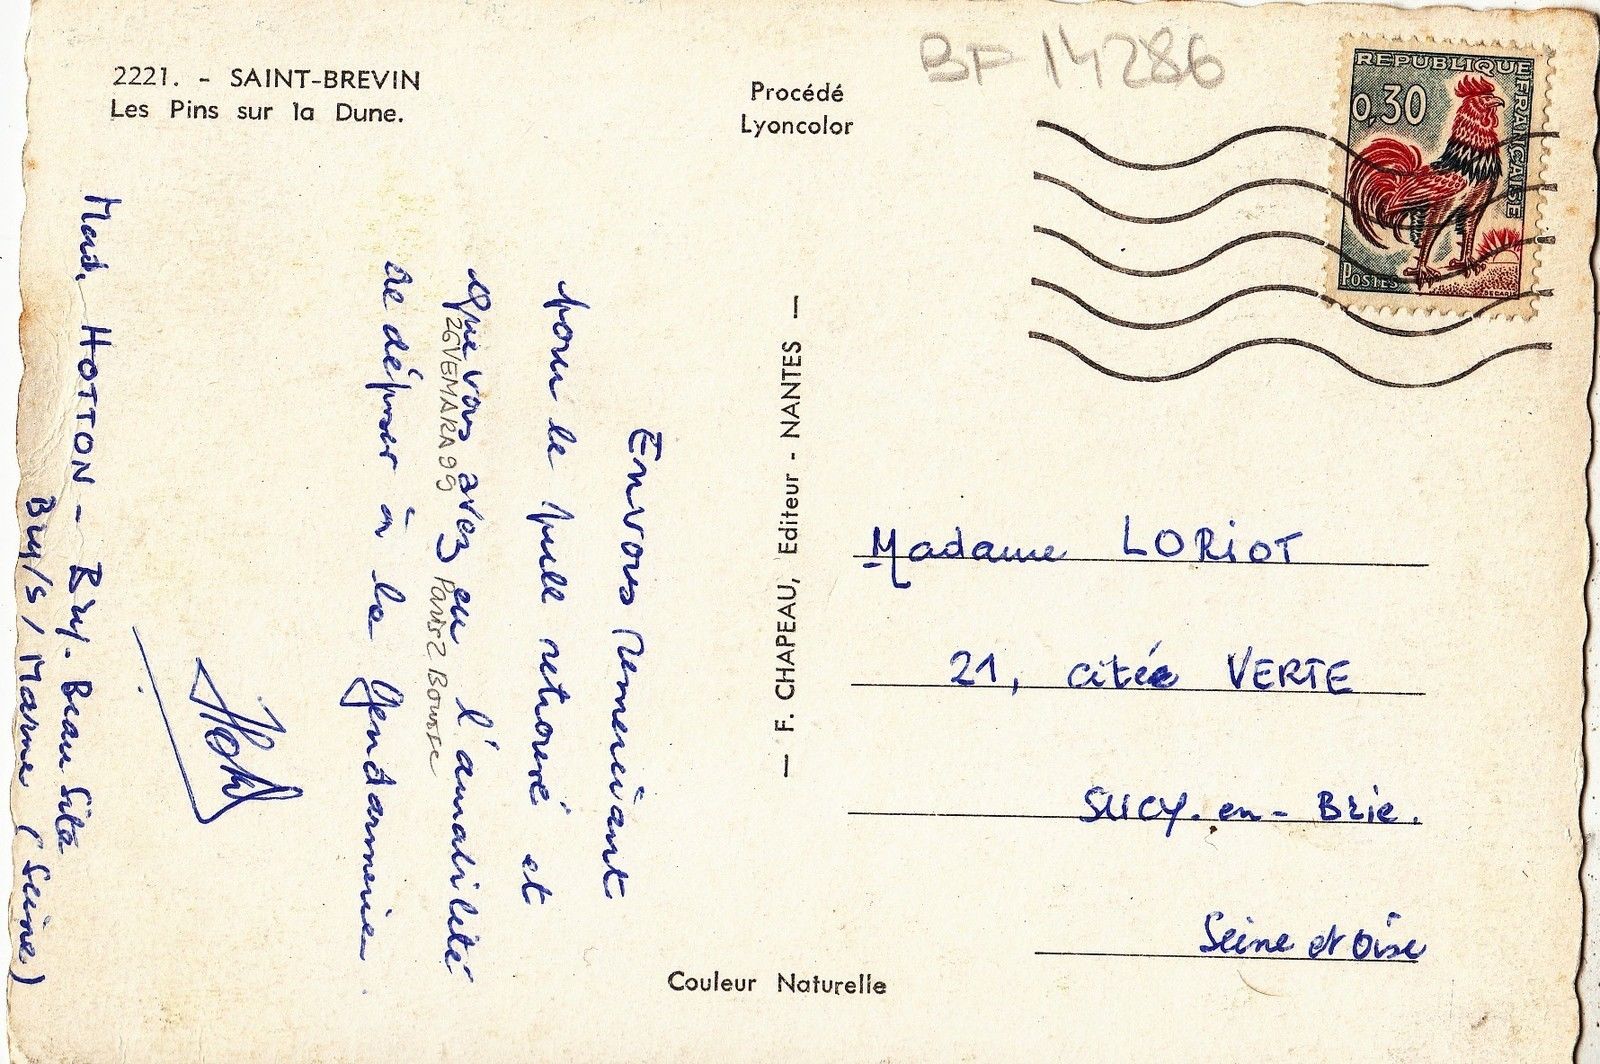 2221. - SAINT-BREVIN
Les Pins sur la Dune.
Procédé
Lyoncolor
BF 14286
REPUBLIQUE FRANÇAISE
0,30
POSTES
DECARIS
En vous remerciant
pour le pull retrouvé et
que vous avez eu l'amabilité
de déposer à la Gendarmerie
26VEMARA99 Paris 2 Bourse
HOTTON - Bry. Beau Site
Bry/s/Marne (Seine)
— F. CHAPEAU, Editeur - NANTES —
Madame LORIOT
21, citée VERTE
SUCY-en-Brie.
Seine et Oise
Couleur Naturelle